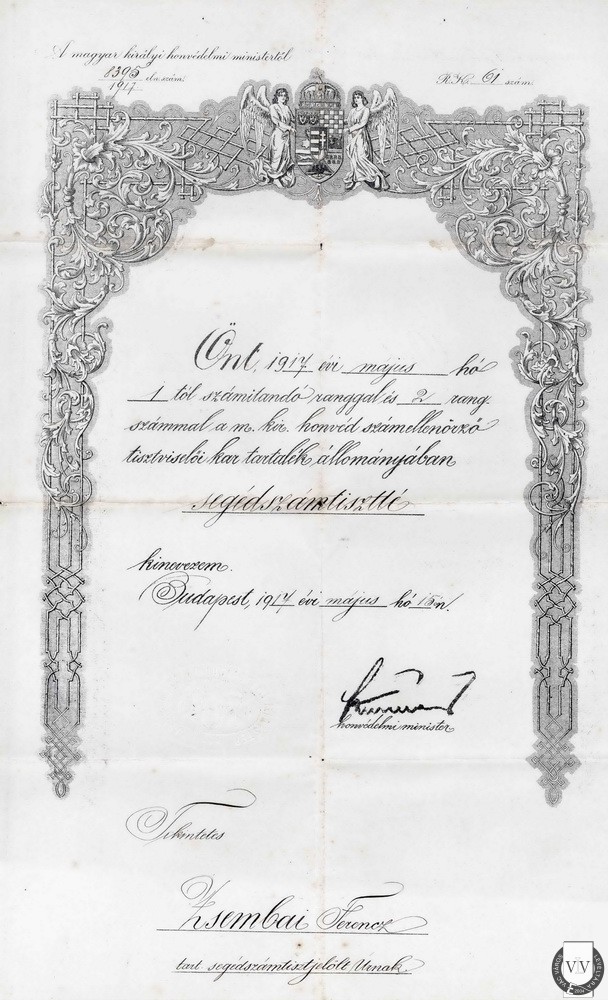 A magyar királyi honvédelmi ministertől
8395 eln. szám.
1917
R.K. 61 szám.
Önt, 1917 évi május hó
1 től számitandó ranggal és 2 rang
számmal a m. kir. honvéd számellenőrző
tisztviselői kar tartalék állományában
segédszámtisztté
kinevezem.
Budapest, 1917 évi május hó 15n.
honvédelmi minister
Tekintetes
Zsembai Ferencz
tart segédszámtisztjelölt Urnak